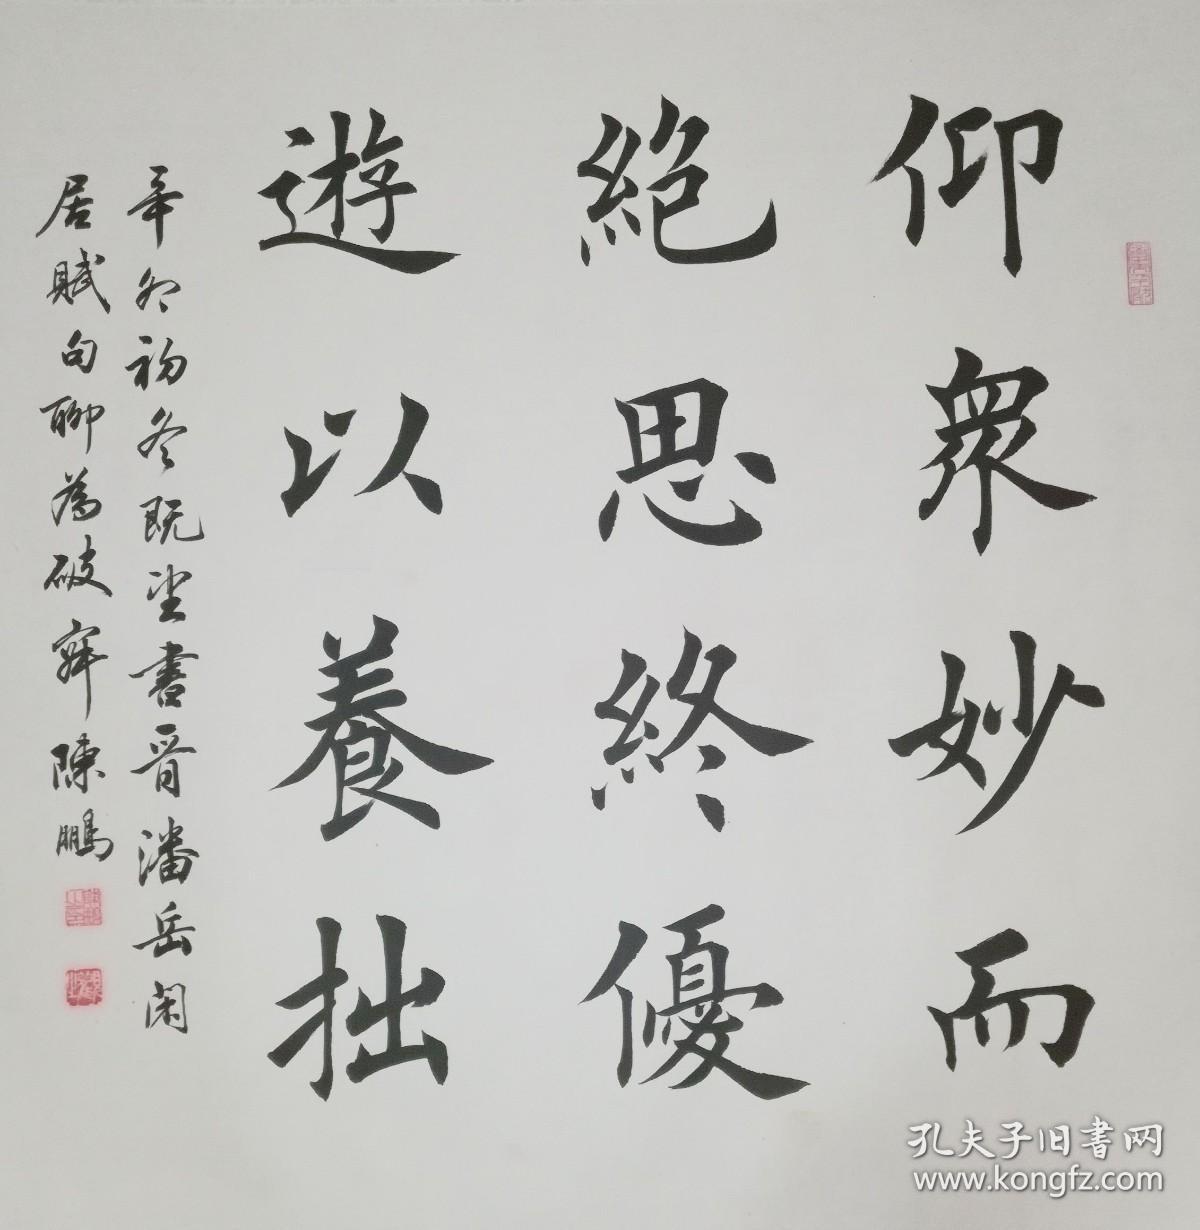 仰衆妙而
絕思終優
遊以養拙
辛卯初冬既望書晉潘岳閑
居賦句聊為破寂陳鵬
孔夫子旧書网
www.kongfz.com